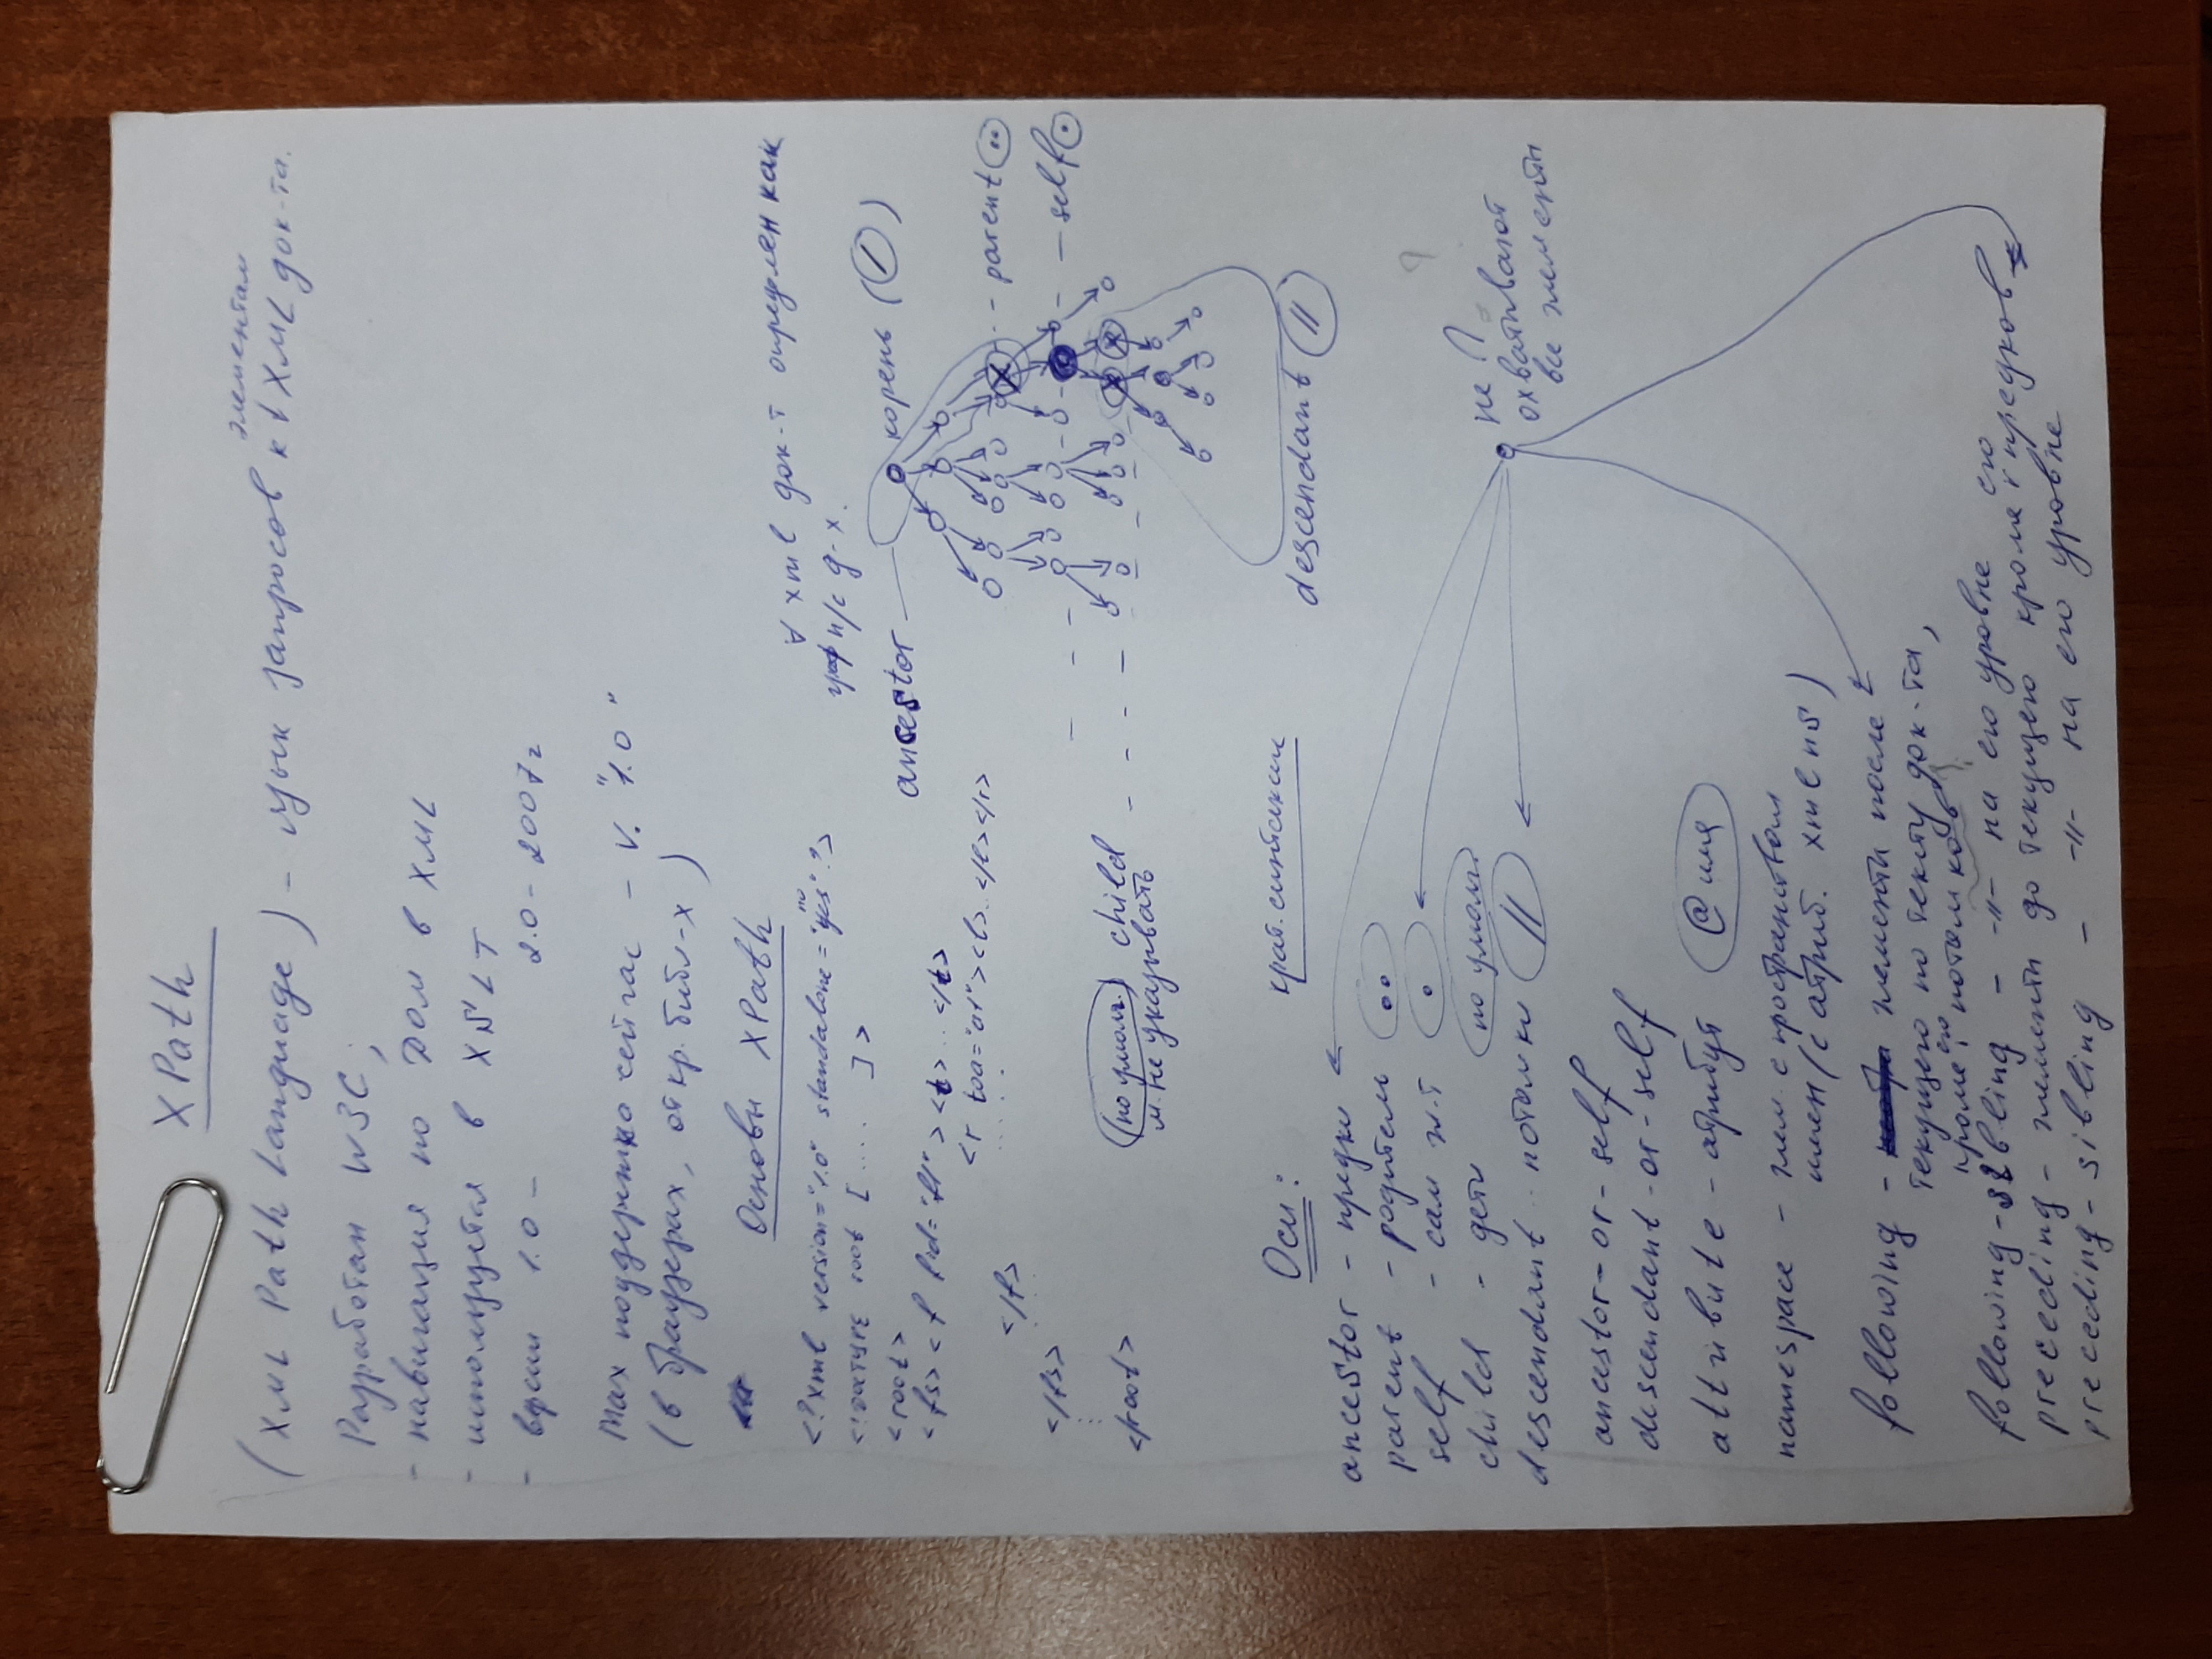 XPath
элементам
(XML Path Language) - язык запросов к XML док-та.
Разработан W3C;
- навигация по DOM в XML
- используется в XSLT
- версии 1.0 - 2.0 - 2007г
Max поддержка сейчас - v. "1.0"
(в браузерах, откр. библ-х)
Основы XPath
no
<?xml version="1.0" standalone="yes"?>
<!DOCTYPE root [ ..... ]>
<root>
<fs><f fid="f1"><t>...</t>
<r toa="a1"><l>...</l></r>
......
</f>
.....
</fs>
</root>
∀ xml док-т определен как
граф п/с д-х.
ancestor
корень (/)
parent ..
self .
(по умолч.) child
м. не указывать
descendant //
Оси: крат. синтаксис
ancestor - предки
parent - родитель ..
self - сам эл-т .
child - дети по умолч.
descendant - потомки //
?
не
охватывают
все элементы
ancestor-or-self
descendant-or-self
attribute - атрибут @имя
namespace - элем. с пространством
имен (с атриб. xmlns)
following - элементы после
текущего по тексту док-та,
кроме его потомков ?
following-sibling - -//- на его уровне
preceding - элементы до текущего кроме его предков
preceding-sibling - -//- на его уровне